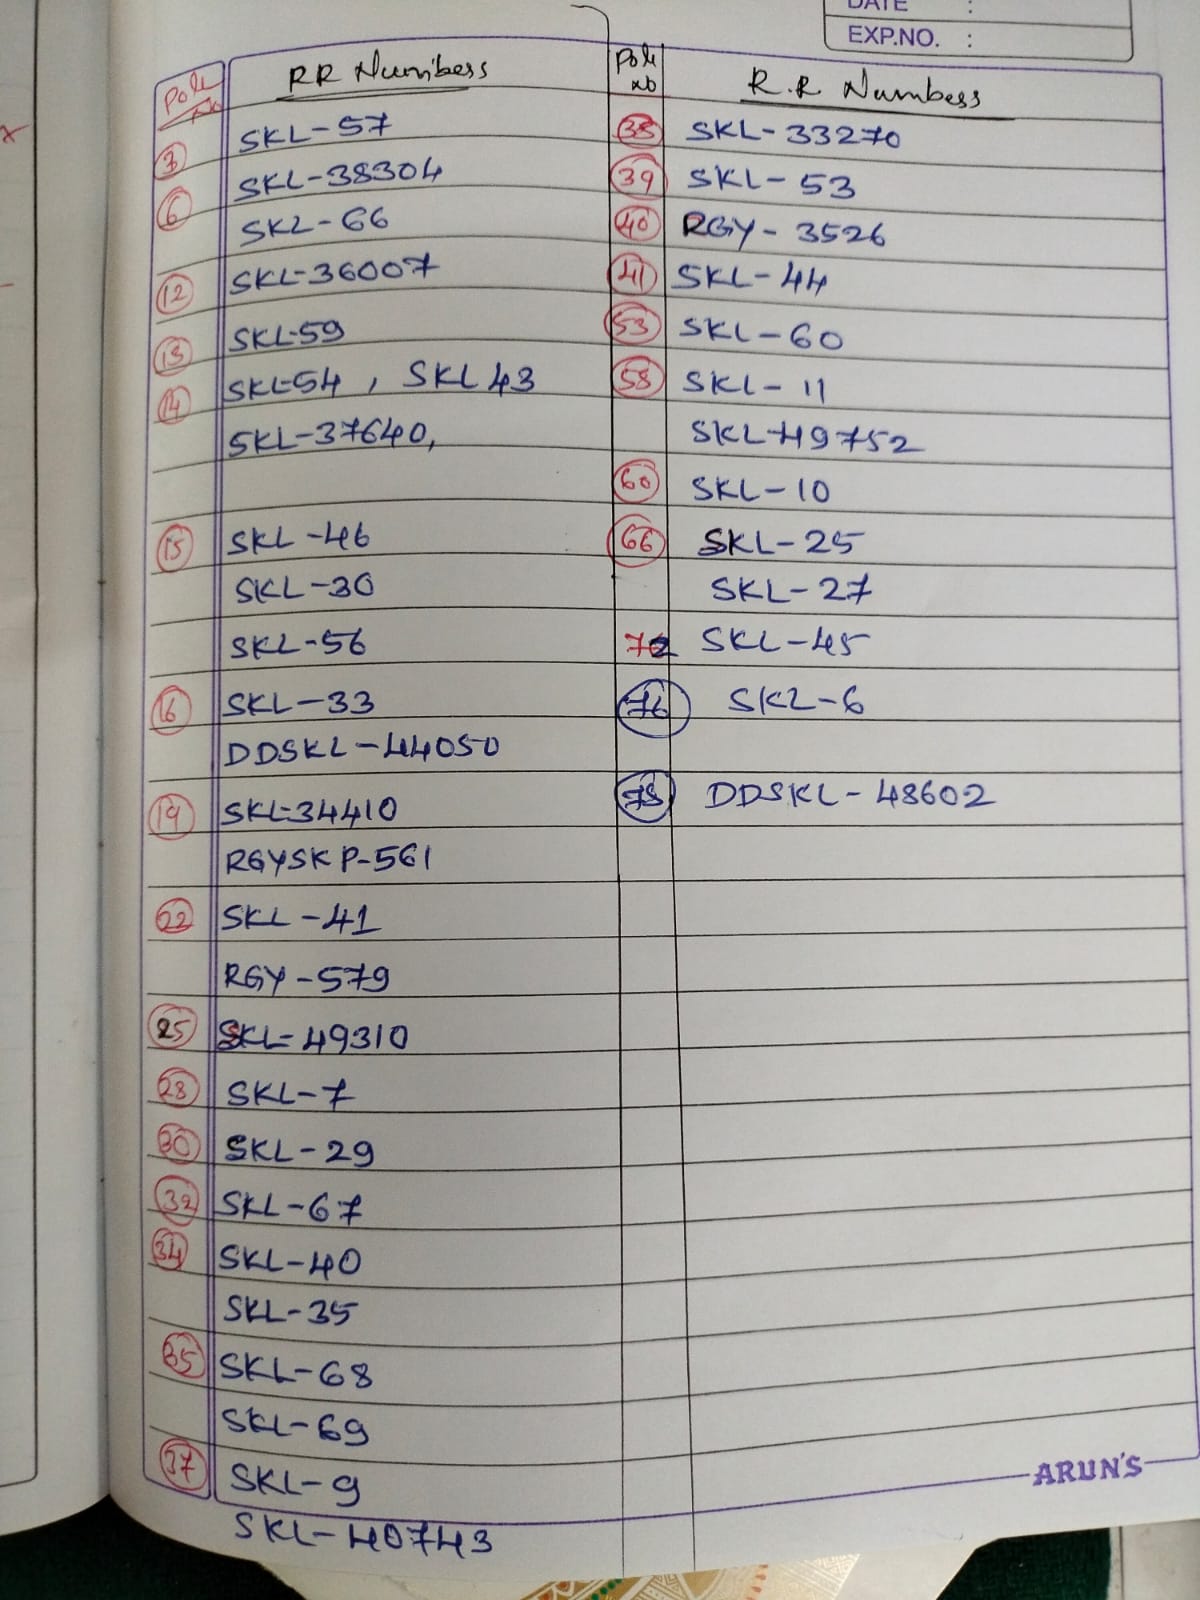 DATE :
EXP.NO. :
Pole No RR Numbers
3 SKL-57
6 SKL-38304
SKL-66
12 SKL-36007
13 SKL-59
14 SKL-54 , SKL 43
SKL-37640,
15 SKL-46
SKL-30
SKL-56
16 SKL-33
DDSKL-44050
19 SKL-34410
RGYSKP-561
22 SKL-41
RGY-579
25 SKL-49310
28 SKL-7
30 SKL-29
32 SKL-67
34 SKL-40
SKL-35
35 SKL-68
SKL-69
37 SKL-9
SKL-40743
Pole No R.R Numbers
38 SKL-33270
39 SKL-53
40 RGY-3526
41 SKL-44
53 SKL-60
58 SKL-11
SKL-49752
60 SKL-10
66 SKL-25
SKL-27
72 SKL-45
76 SKL-6
78 DDSKL-48602
ARUN'S